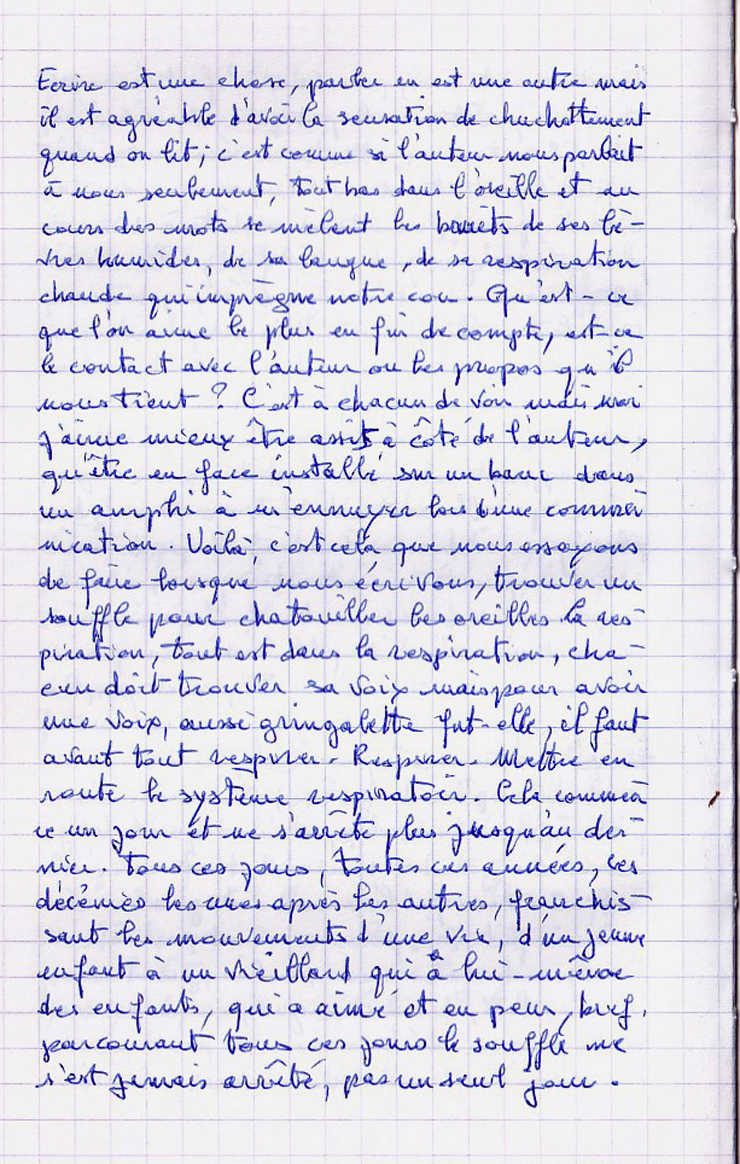 Ecrire est une chose, parler en est une autre mais
il est agréable d'avoir la sensation de chuchottement
quand on lit ; c'est comme si l'auteur nous parlait
à nous seulement, tout bas dans l'oreille et au
cours des mots se mêlent les bruits de ses lè-
vres humides, de sa langue, de sa respiration
chaude qui imprègne notre cou. Qu'est-ce
que l'on aime le plus en fin de compte, est-ce
le contact avec l'auteur ou les propos qu'il
nous tient ? C'est à chacun de voir mais moi
j'aime mieux être assis à côté de l'auteur,
qu'être en face installé sur un banc dans
un amphi à m'ennuyer lors d'une commu
nication. Voilà, c'est cela que nous essayons
de faire lorsque nous écrivons, trouver un
souffle pour chatouiller les oreilles la res-
piration, tout est dans la respiration, cha-
cun doit trouver sa voix mais pour avoir
une voix, aussi gringalette fut-elle, il faut
avant tout respirer. Respirer. Mettre en
route le système respiratoire. Cela commen
ce un jour et ne s'arrête plus jusqu'au der-
nier. Tous ces jours, toutes ces années, ces
décénies les unes après les autres, franchis-
sant les mouvements d'une vie, d'un jeune
enfant à un vieillard qui a lui-même
des enfants, qui a aimé et eu peur, bref,
parcourant tous ces jours le souffle ne
s'est jamais arrêté, pas un seul jour.